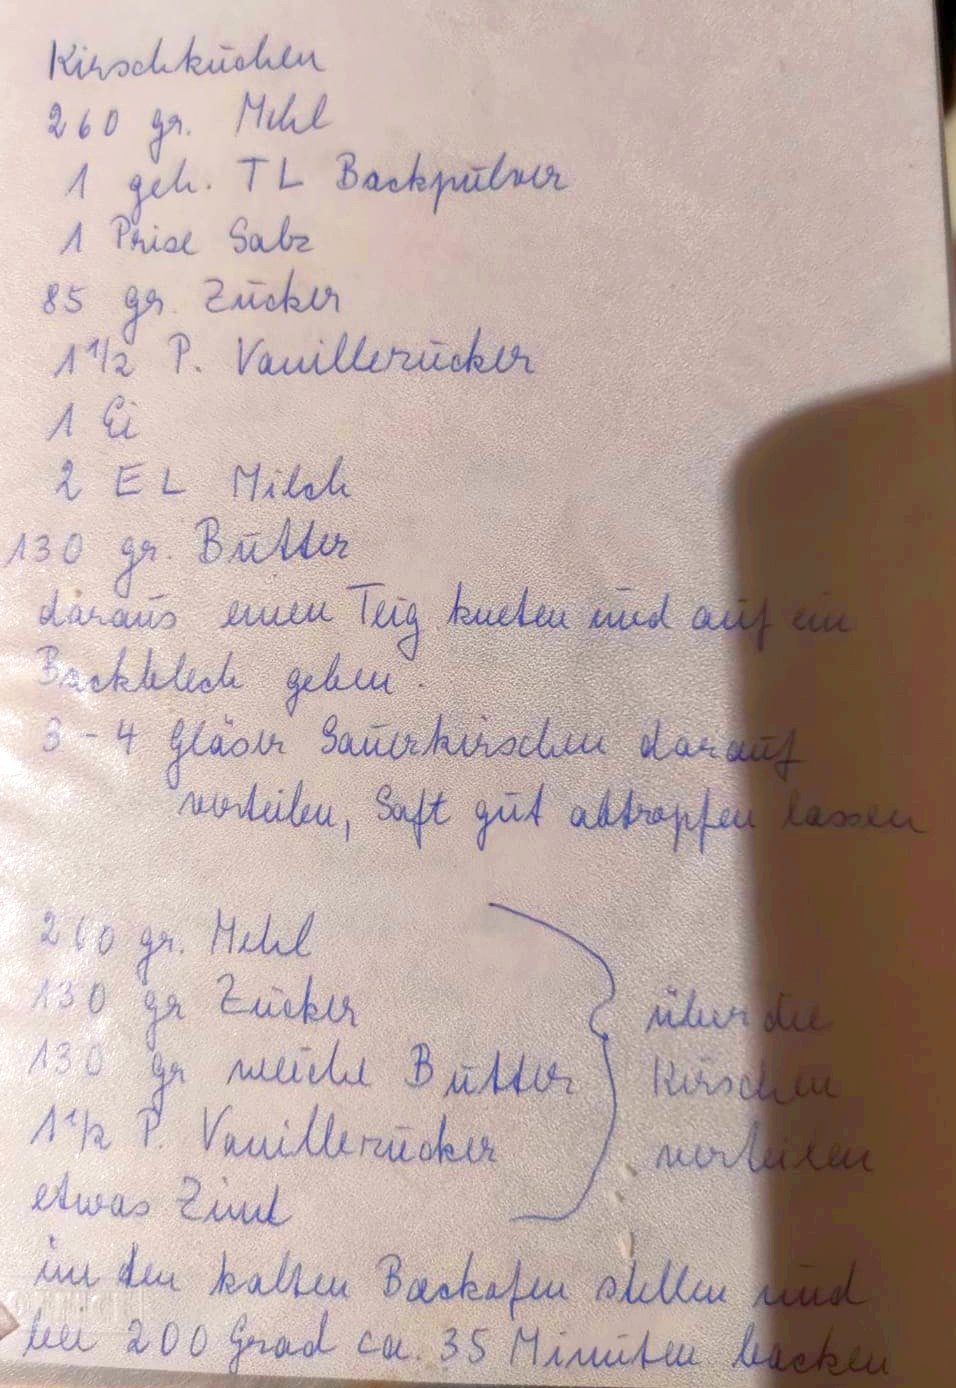 Kirschkuchen
260 gr. Mehl
1 geh. TL Backpulver
1 Prise Salz
85 gr. Zucker
1 1/2 P. Vanillezucker
1 Ei
2 EL Milch
130 gr. Butter
daraus einen Teig kneten und auf ein
Backblech geben.
3 - 4 Gläser Sauerkirschen darauf
verteilen, Saft gut abtropfen lassen
260 gr. Mehl
130 gr Zucker
130 gr weiche Butter
1 1/2 P. Vanillezucker
etwas Zimt
über die
Kirschen
verteilen
in den kalten Backofen stellen und
bei 200 Grad ca. 35 Minuten backen